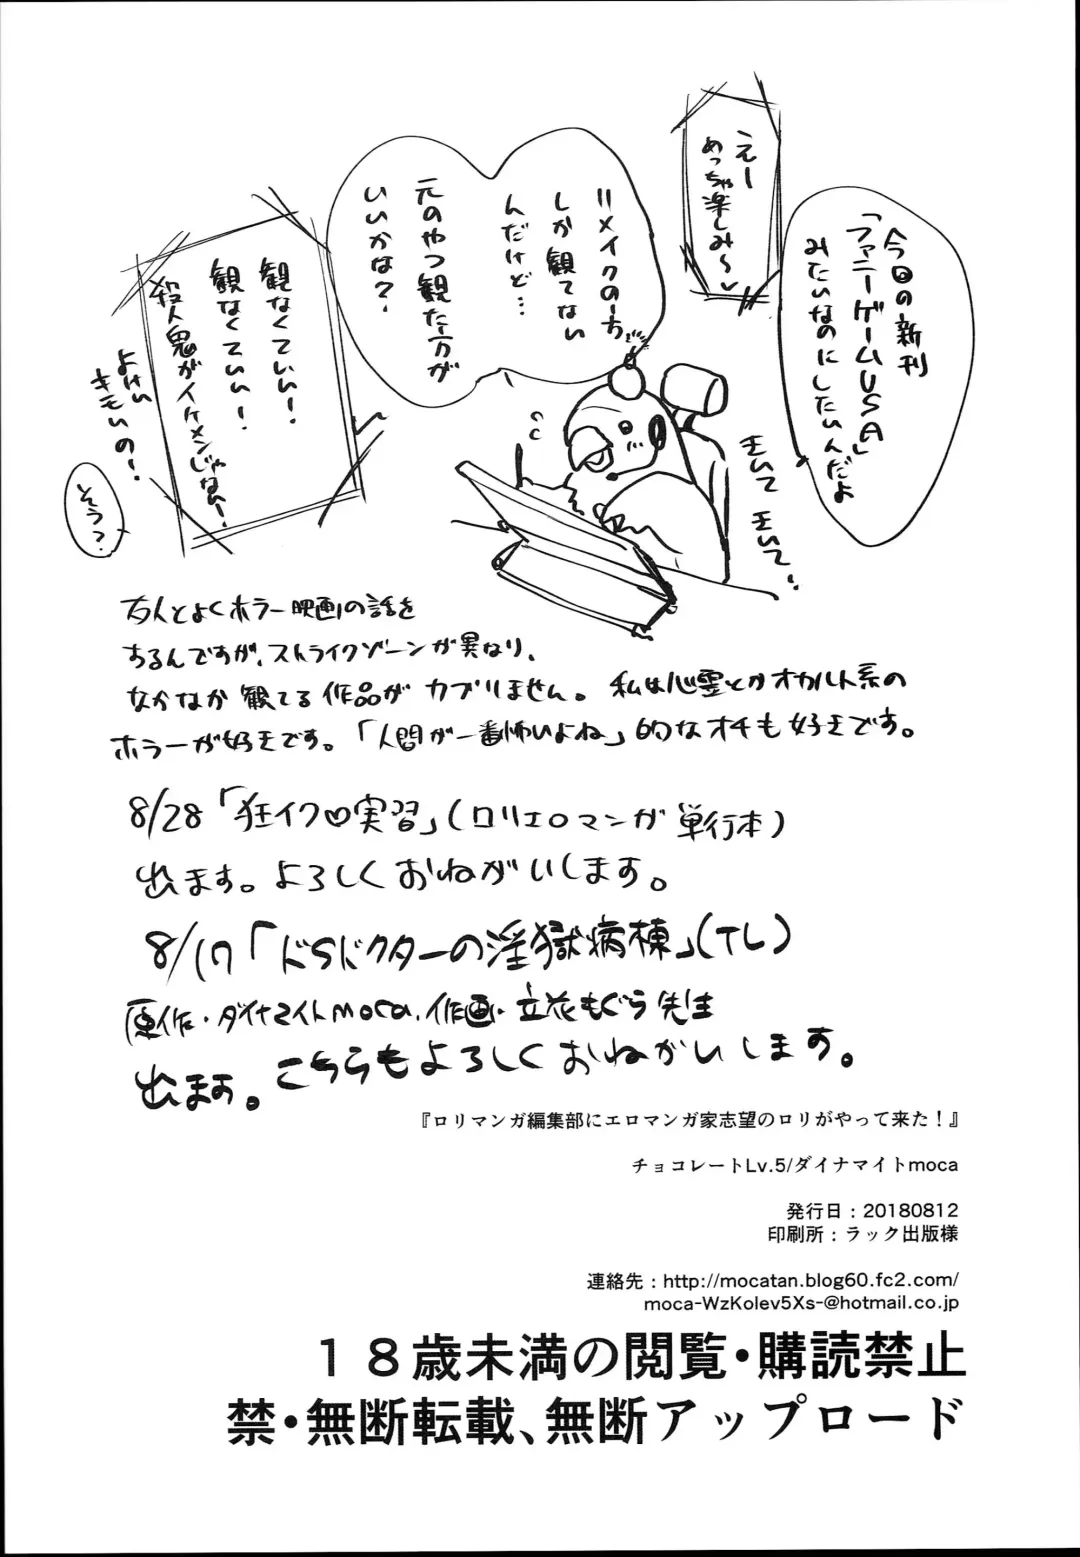 今回の新刊
「ファニーゲームUSA」
みたいなのにしたいんだよ
えー
めっちゃ楽しみ〜♡
リメイクの方
しか観てない
んだけど…
元のやつ観た方が
いいかな？
観なくていい！
観なくていい！
殺人鬼がイケメンじゃない！
よけい
キモいの！
そう？
友人とよくホラー映画の話を
するんですが、ストライクゾーンが異なり、
なかなか観てる作品がカブりません。私は心霊とかオカルト系の
ホラーが好きです。「人間が一番怖いよね」的なオチも好きです。
8/28「狂イク♡実習」(ロリエロマンガ単行本)
出ます。よろしくおねがいします。
8/17「ドSドクターの淫獄病棟」(TL)
原作・ダイナマイトmoca、作画・立花もぐら先生
出ます。こちらもよろしくおねがいします。
『ロリマンガ編集部にエロマンガ家志望のロリがやって来た！』
チョコレートLv.5/ダイナマイトmoca
発行日：20180812
印刷所：ラック出版様
連絡先：http://mocatan.blog60.fc2.com/
moca-WzKolev5Xs-@hotmail.co.jp
１８歳未満の閲覧・購読禁止
禁・無断転載、無断アップロード